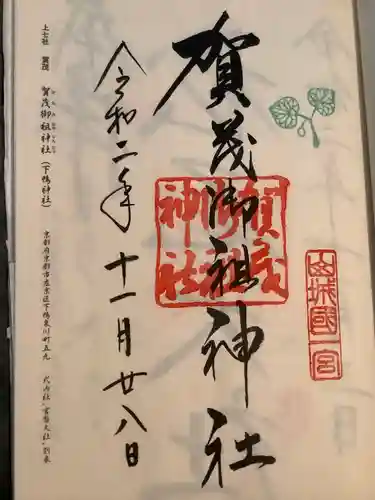 山城國一宮
賀茂御祖神社
賀茂御祖神社
令和二年十一月廿八日
上七社 賀茂 賀茂御祖神社(下鴨神社)
京都府京都市左京区下鴨泉川町五九